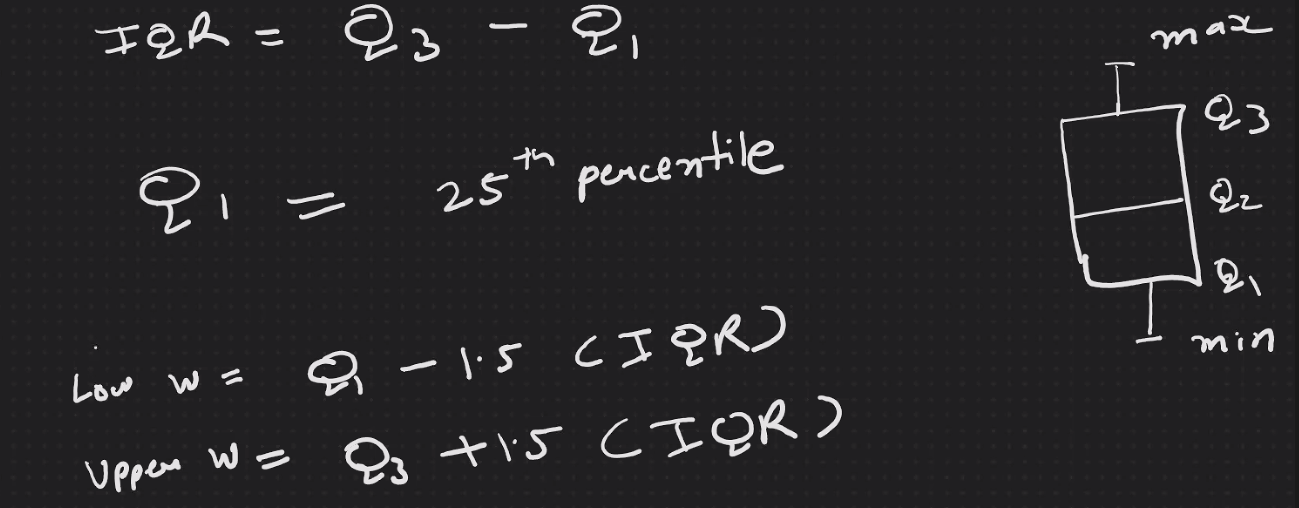 IQR = Q3 - Q1
Q1 = 25th percentile
Low w = Q1 - 1.5 (IQR)
Upper w = Q3 + 1.5 (IQR)
max
Q3
Q2
Q1
min